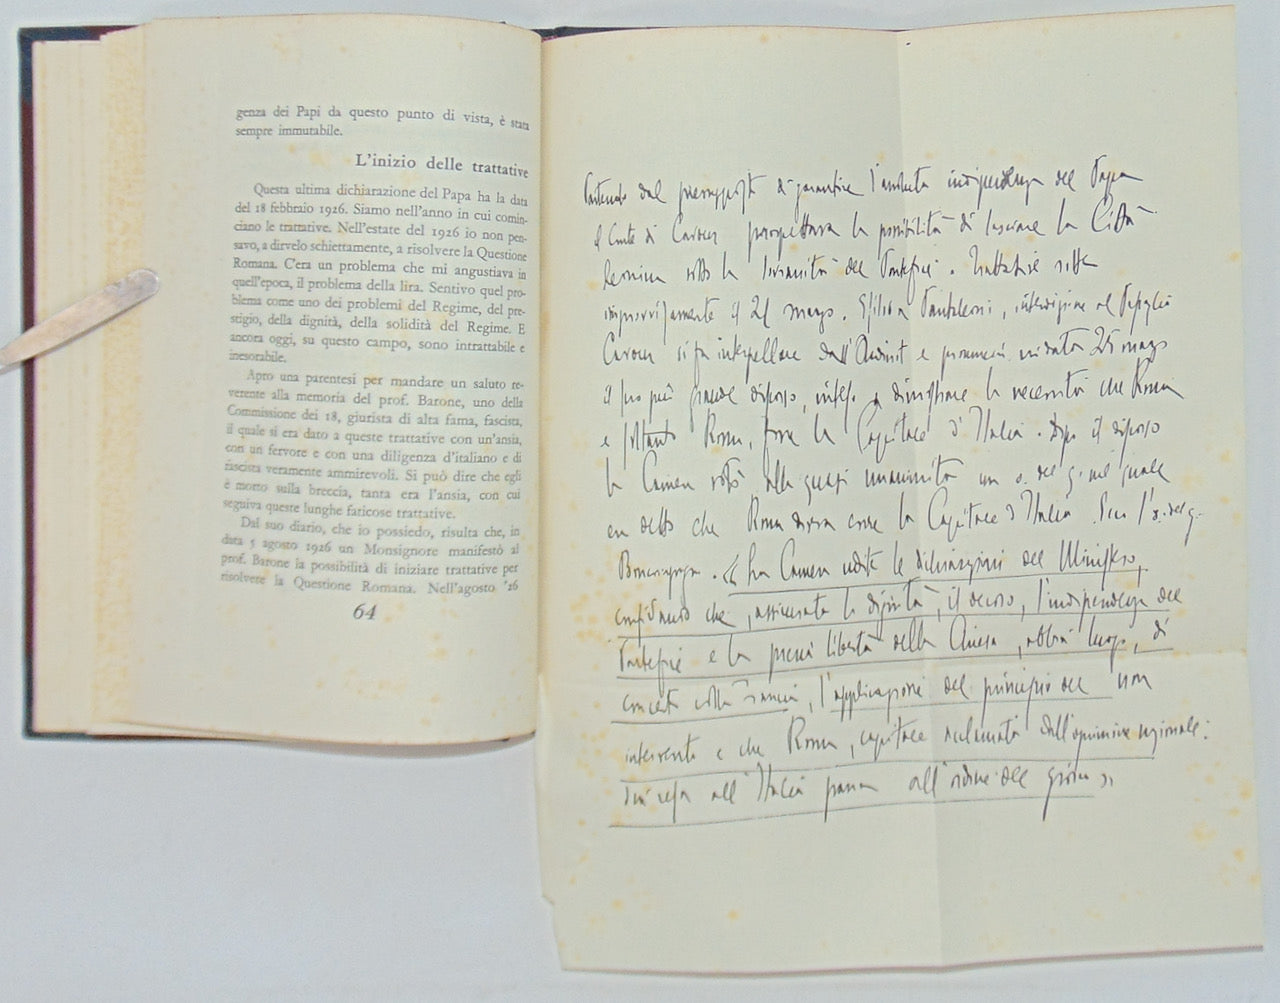 genza dei Papi da questo punto di vista, è stata
sempre immutabile.
L'inizio delle trattative
Questa ultima dichiarazione del Papa ha la data
del 18 febbraio 1926. Siamo nell'anno in cui comin-
ciano le trattative. Nell'estate del 1926 io non pen-
savo, a dirvelo schiettamente, a risolvere la Questione
Romana. C'era un problema che mi angustiava in
quell'epoca, il problema della lira. Sentivo quel pro-
blema come uno dei problemi del Regime, del pre-
stigio, della dignità, della solidità del Regime. E
ancora oggi, su questo campo, sono intrattabile e
inesorabile.
Apro una parentesi per mandare un saluto re-
verente alla memoria del prof. Barone, uno della
Commissione dei 18, giurista di alta fama, fascista,
il quale si era dato a queste trattative con un'ansia,
con un fervore e con una diligenza d'italiano e di
fascista veramente ammirevoli. Si può dire che egli
è morto sulla breccia, tanta era l'ansia, con cui
seguiva queste lunghe faticose trattative.
Dal suo diario, che io possiedo, risulta che, in
data 5 agosto 1926 un Monsignore manifestò al
prof. Barone la possibilità di iniziare trattative per
risolvere la Questione Romana. Nell'agosto '26
64
Partendo dal presupposto di garantire l'assoluta indipendenza del Papa
il Conte di Cavour prospettava la possibilità di lasciare la Città
Leonina sotto la sovranità del Pontefice. Trattative rotte
improvvisamente il 21 marzo. Pantaleoni,
Cavour si fa interpellare dall'Audinot e pronuncia in data 25 marzo
il suo più grande discorso, inteso a dimostrare la necessità che Roma
e soltanto Roma, fosse la Capitale d'Italia. Dopo il discorso
la Camera votò alla quasi unanimità un o. del g. nel quale
era detto che Roma doveva essere la Capitale d'Italia. l'o. del g.
Boncompagni. «La Camera udite le dichiarazioni del Ministero,
confidando che, assicurata la dignità, il decoro, l'indipendenza del
Pontefice e la piena libertà della Chiesa, abbia luogo, di
concerto colla Francia, l'applicazione del principio del non
intervento e che Roma, capitale acclamata dall'opinione nazionale:
sia resa all'Italia passa all'ordine del giorno»